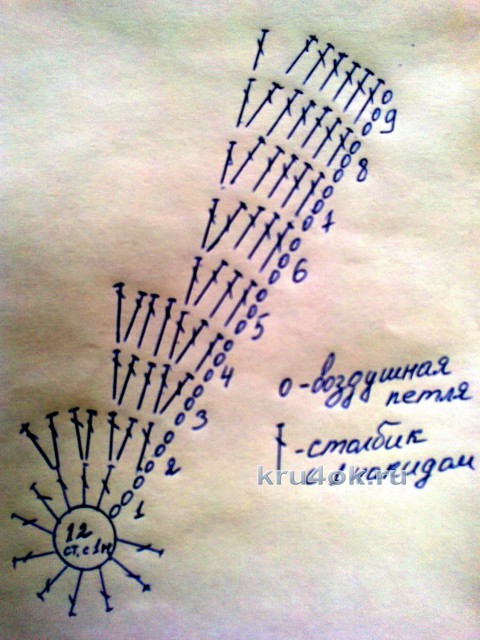 9
8
7
6
5
4
3
2
1
12
ст. с 1н
о - воздушная
петля
- столбик
с 1 накидом
kru4ok.ru